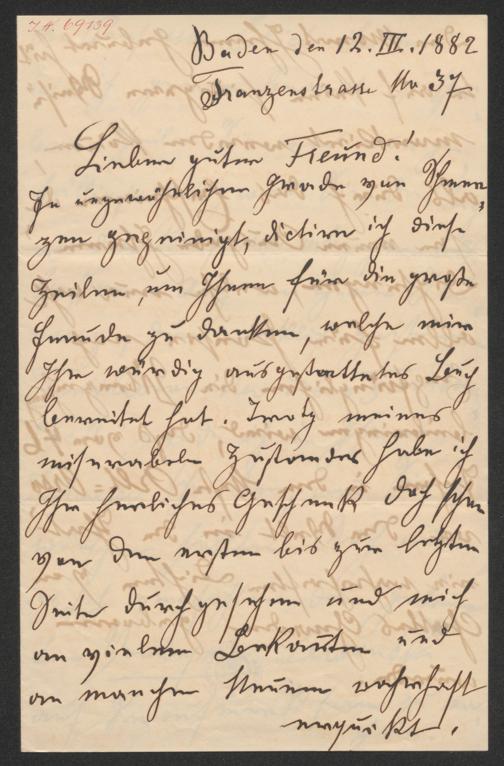 J. N. 69139
Baden den 12. III. 1882
Franzensstrasse No 37
Lieber guter Freund!
In ungewöhnlichem Grade von Schmer-
zen gepeinigt, dictire ich diese
Zeilen, um Ihnen für die große
Freude zu danken, welche mir
Ihr würdig ausgestattetes Buch
bereitet hat. Trotz meines
miserabeln Zustandes habe ich
Ihr herrliches Geschenk doch schon
von der ersten bis zur letzten
Seite durchgesehen und mich
an vielem Bekannten und
an manchem Neuem wahrhaft
erquickt.